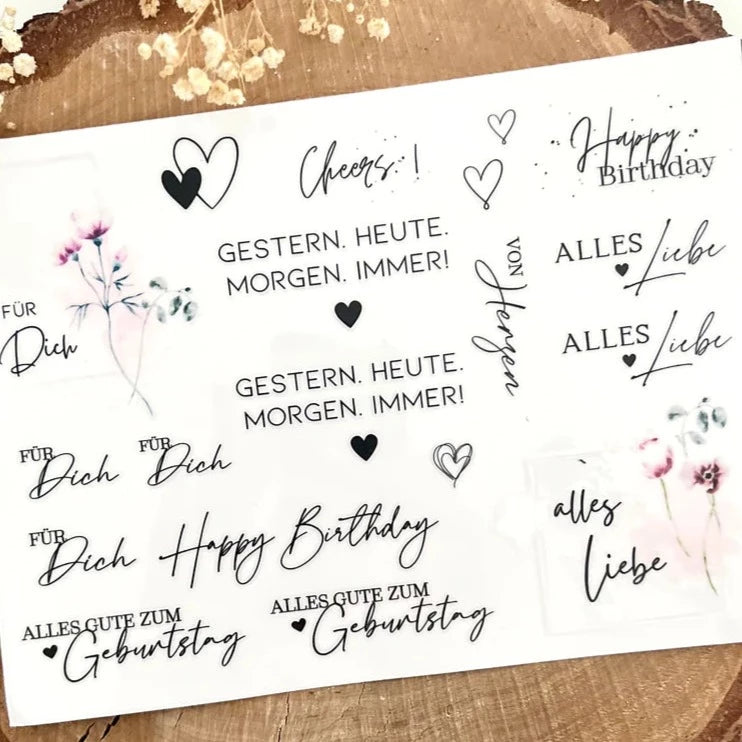 Cheers!
Happy
Birthday
GESTERN. HEUTE.
MORGEN. IMMER!
VON
Herzen
ALLES
Liebe
FÜR
Dich
GESTERN. HEUTE.
MORGEN. IMMER!
ALLES
Liebe
FÜR
Dich
FÜR
Dich
alles
liebe
FÜR
Dich
Happy Birthday
ALLES GUTE ZUM
Geburtstag
ALLES GUTE ZUM
Geburtstag